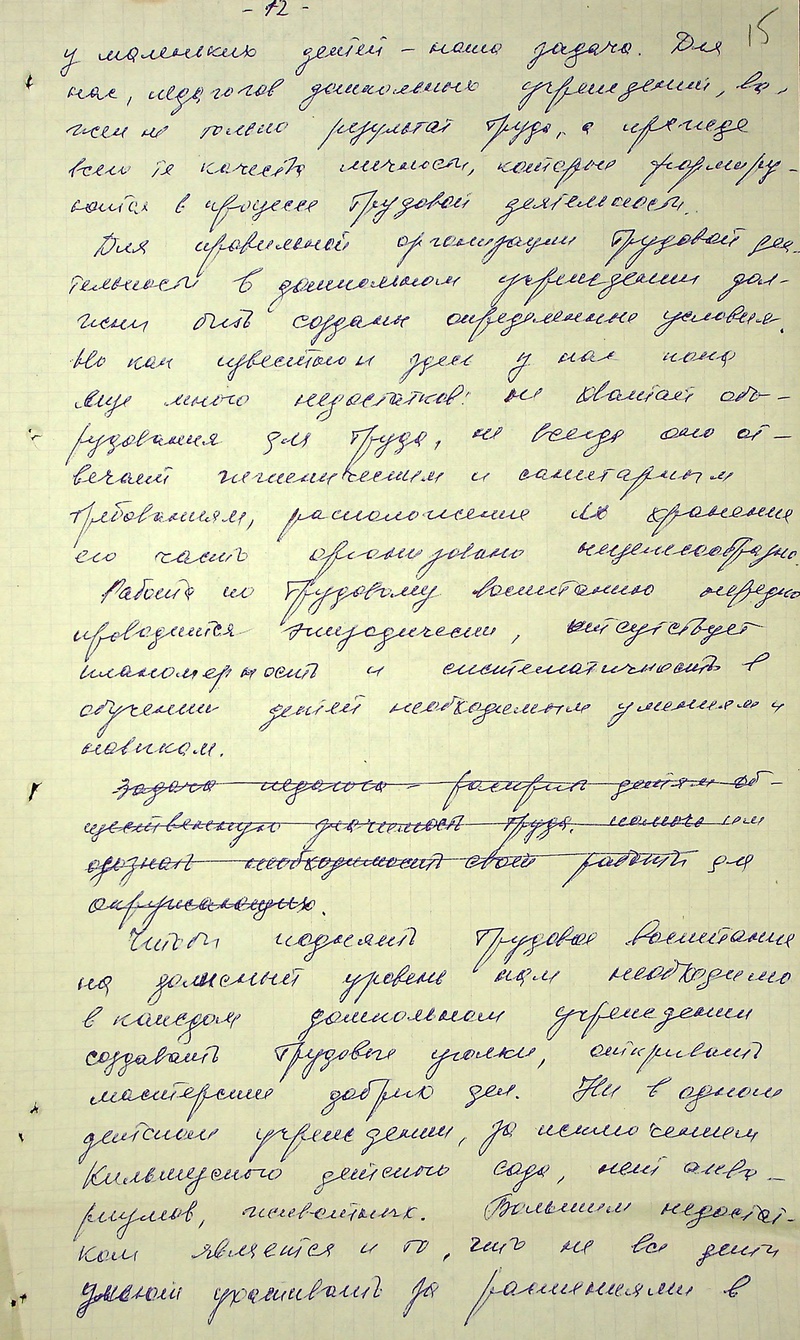 - 12 -
15
у маленьких детей - наша задача. Для
нас, педагогов дошкольных учреждений, ва-
жен не только результат труда, а прежде
всего те качества личности, которые формиру-
ются в процессе трудовой деятельности.
Для правильной организации трудовой дея-
тельности в дошкольном учреждении дол-
жны быть созданы определенные условия.
Но как известно и здесь у нас пока
еще много недостатков: не хватает обо-
рудования для труда, не всегда оно от-
вечает гигиеническим и санитарным
требованиям, расположение их хранение
его часто организовано нецелесообразно.
Работа по трудовому воспитанию нередко
проводится эпизодически, отсутствует
планомерность и систематичность в
обучении детей необходимым умениям и
навыкам.
Задача педагога - раскрыть детям об-
щественную значимость труда, помочь им
осознать необходимость своей работы для
окружающих.
Чтобы поднять трудовое воспитание
на должный уровень нам необходимо
в каждом дошкольном учреждении
создавать трудовые уголки, открывать
мастерские добрых дел. Ни в одном
детском учреждении, за исключением
Кильмезского детского сада, нет аква-
риумов, животных. Большим недостат-
ком является и то, что не все дети
умеют ухаживать за растениями в